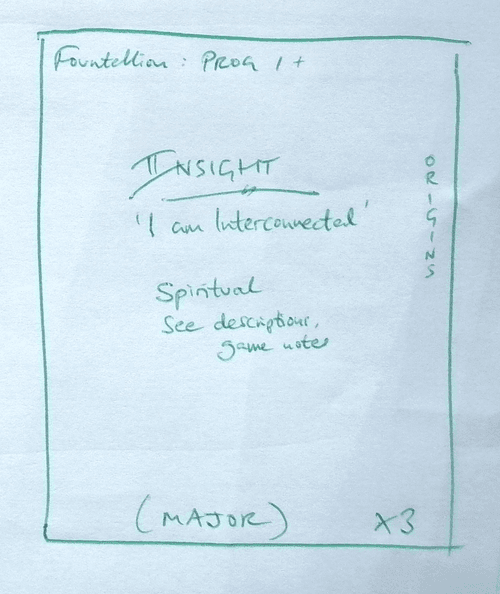 Fountellion : PROG 1 +
INSIGHT
'I am Interconnected'
ORIGINS
Spiritual
See descriptions,
game notes
(MAJOR)
X3